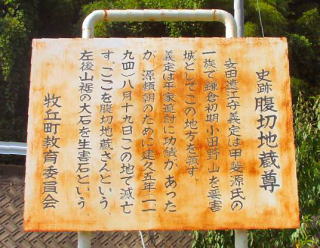 史跡 腹切地蔵尊
安田遠江守義定は甲斐源氏の
一族で鎌倉初期小田野山を要害
城としてこの地方を治す。
義定は平家追討に功績があった
が、源頼朝のために建久五年(一一
九四)八月十九日この地で滅亡
す。ここを腹切地蔵さんという。
左後山裾の大石を生害石という。
牧丘町教育委員会